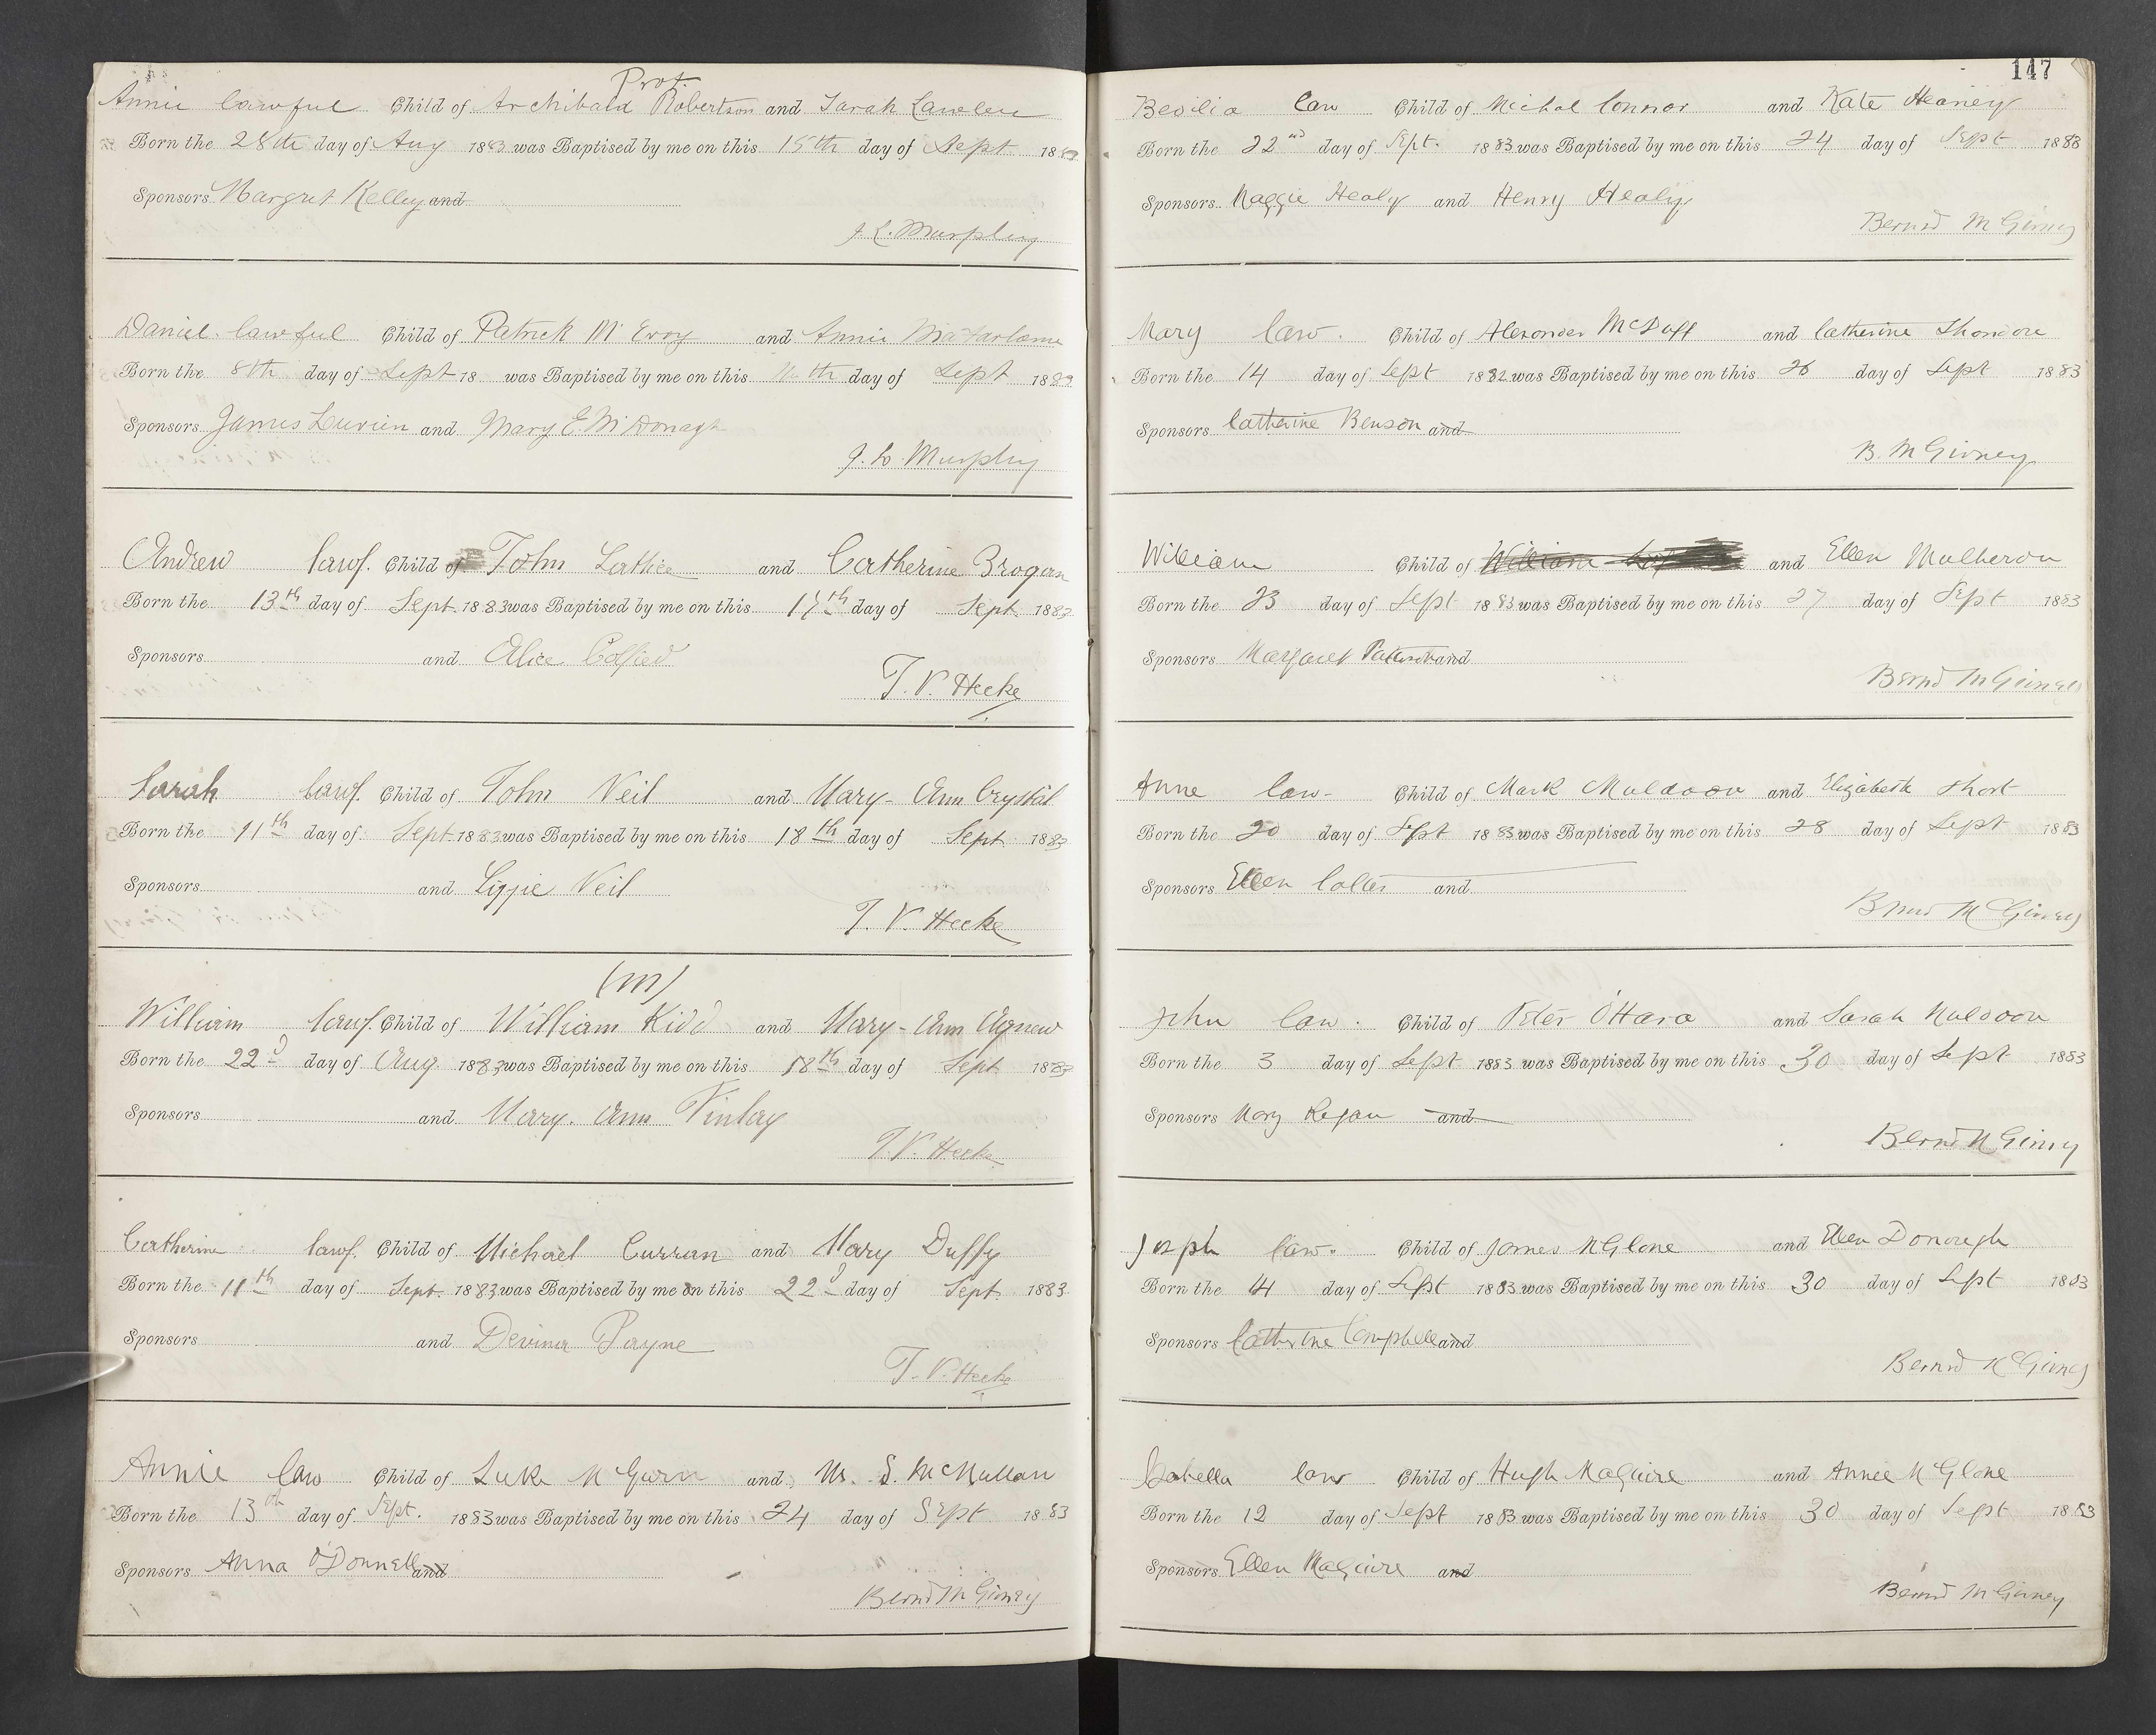 Prot.
Annie lawful Child of Archibald Robertson and Sarah Lawler
Born the 28th day of Aug 1883 was Baptised by me on this 15th day of Sept 188
Sponsors Margret Kelley and
J. L. Murphy
Daniel lawful Child of Patrick McEvoy and Annie MacFarlane
Born the 8th day of Sept 18 was Baptised by me on this day of Sept 188
Sponsors James and Mary E. McDonagh
J. L. Murphy
Andrew lawf. Child of John and Catherine Brogan
Born the 13th day of Sept. 1883 was Baptised by me on this 17th day of Sept. 1883
Sponsors and Alice
T. V. Hecke
Sarah lawf. Child of John Neil and Mary-Ann Crystal
Born the 11th day of Sept 1883 was Baptised by me on this 18th day of Sept. 1883
Sponsors and Lizzie Neil
T. V. Hecke
(m)
William lawf. Child of William Kidd and Mary-Ann Agnew
Born the 22d day of Aug. 1883 was Baptised by me on this 18th day of Sept. 1883
Sponsors and Mary. Ann Finlay
T. V. Hecke
Catherine lawf. Child of Michael Curran and Mary Duffy
Born the 11th day of Sept. 1883 was Baptised by me on this 22d day of Sept. 1883
Sponsors and Payne
T. V. Hecke
Annie law Child of Luke McGurn and M. S. McMullan
Born the 13th day of Sept. 1883 was Baptised by me on this 24 day of Sept 1883
Sponsors Anna O'Donnell and
Bernd McGinney
147
law Child of Michal Connor and Kate Heaney
Born the 22nd day of Sept. 1883 was Baptised by me on this 24 day of Sept 1883
Sponsors Maggie Healy and Henry Healy
Bernd McGinney
Mary law. Child of Alexander McDuff and Catherine
Born the 14 day of Sept 1882 was Baptised by me on this 26 day of Sept 1883
Sponsors Catherine Benson and
B. McGinney
William Child of William and Ellen Mulheron
Born the 23 day of Sept 1883 was Baptised by me on this 27 day of Sept 1883
Sponsors Margaret Paterson and
Bernd McGinney
Anne law. Child of Mark Muldoon and Elizabeth Short
Born the 20 day of Sept 1883 was Baptised by me on this 28 day of Sept 1883
Sponsors Ellen and
Bernd McGinney
John law. Child of Peter O'Hara and Sarah Muldoon
Born the 3 day of Sept 1883 was Baptised by me on this 30 day of Sept 1883
Sponsors Mary Regan and
Bernd McGinney
Joseph law. Child of James McGlone and Ellen Donough
Born the 4 day of Sept 1883 was Baptised by me on this 30 day of Sept 1883
Sponsors Catherine Campbell and
Bernd McGinney
Isabella law Child of Hugh Maguire and Annee McGlone
Born the 12 day of Sept 1883 was Baptised by me on this 30 day of Sept 1883
Sponsors Ellen Maguire and
Bernd McGinney